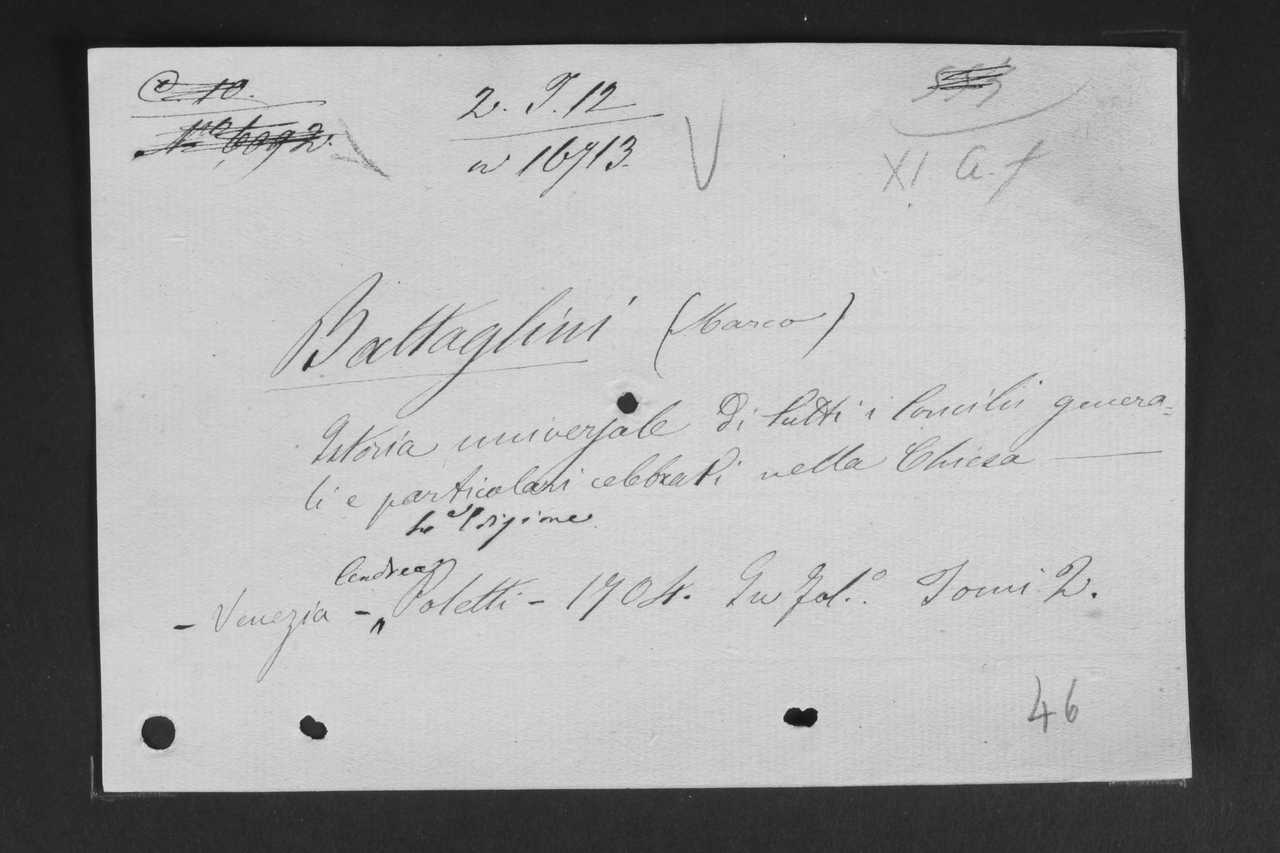 C. 10.
N.º 6092.
2. T. 12
n 16713.
XI a. f
Battaglini (Marco)
Istoria universale di tutti i Concilii genera=
li e particolari celebrati nella Chiesa
Edizione
Andrea
- Venezia - Poletti - 1704. In fol.º Tomi 2.
46